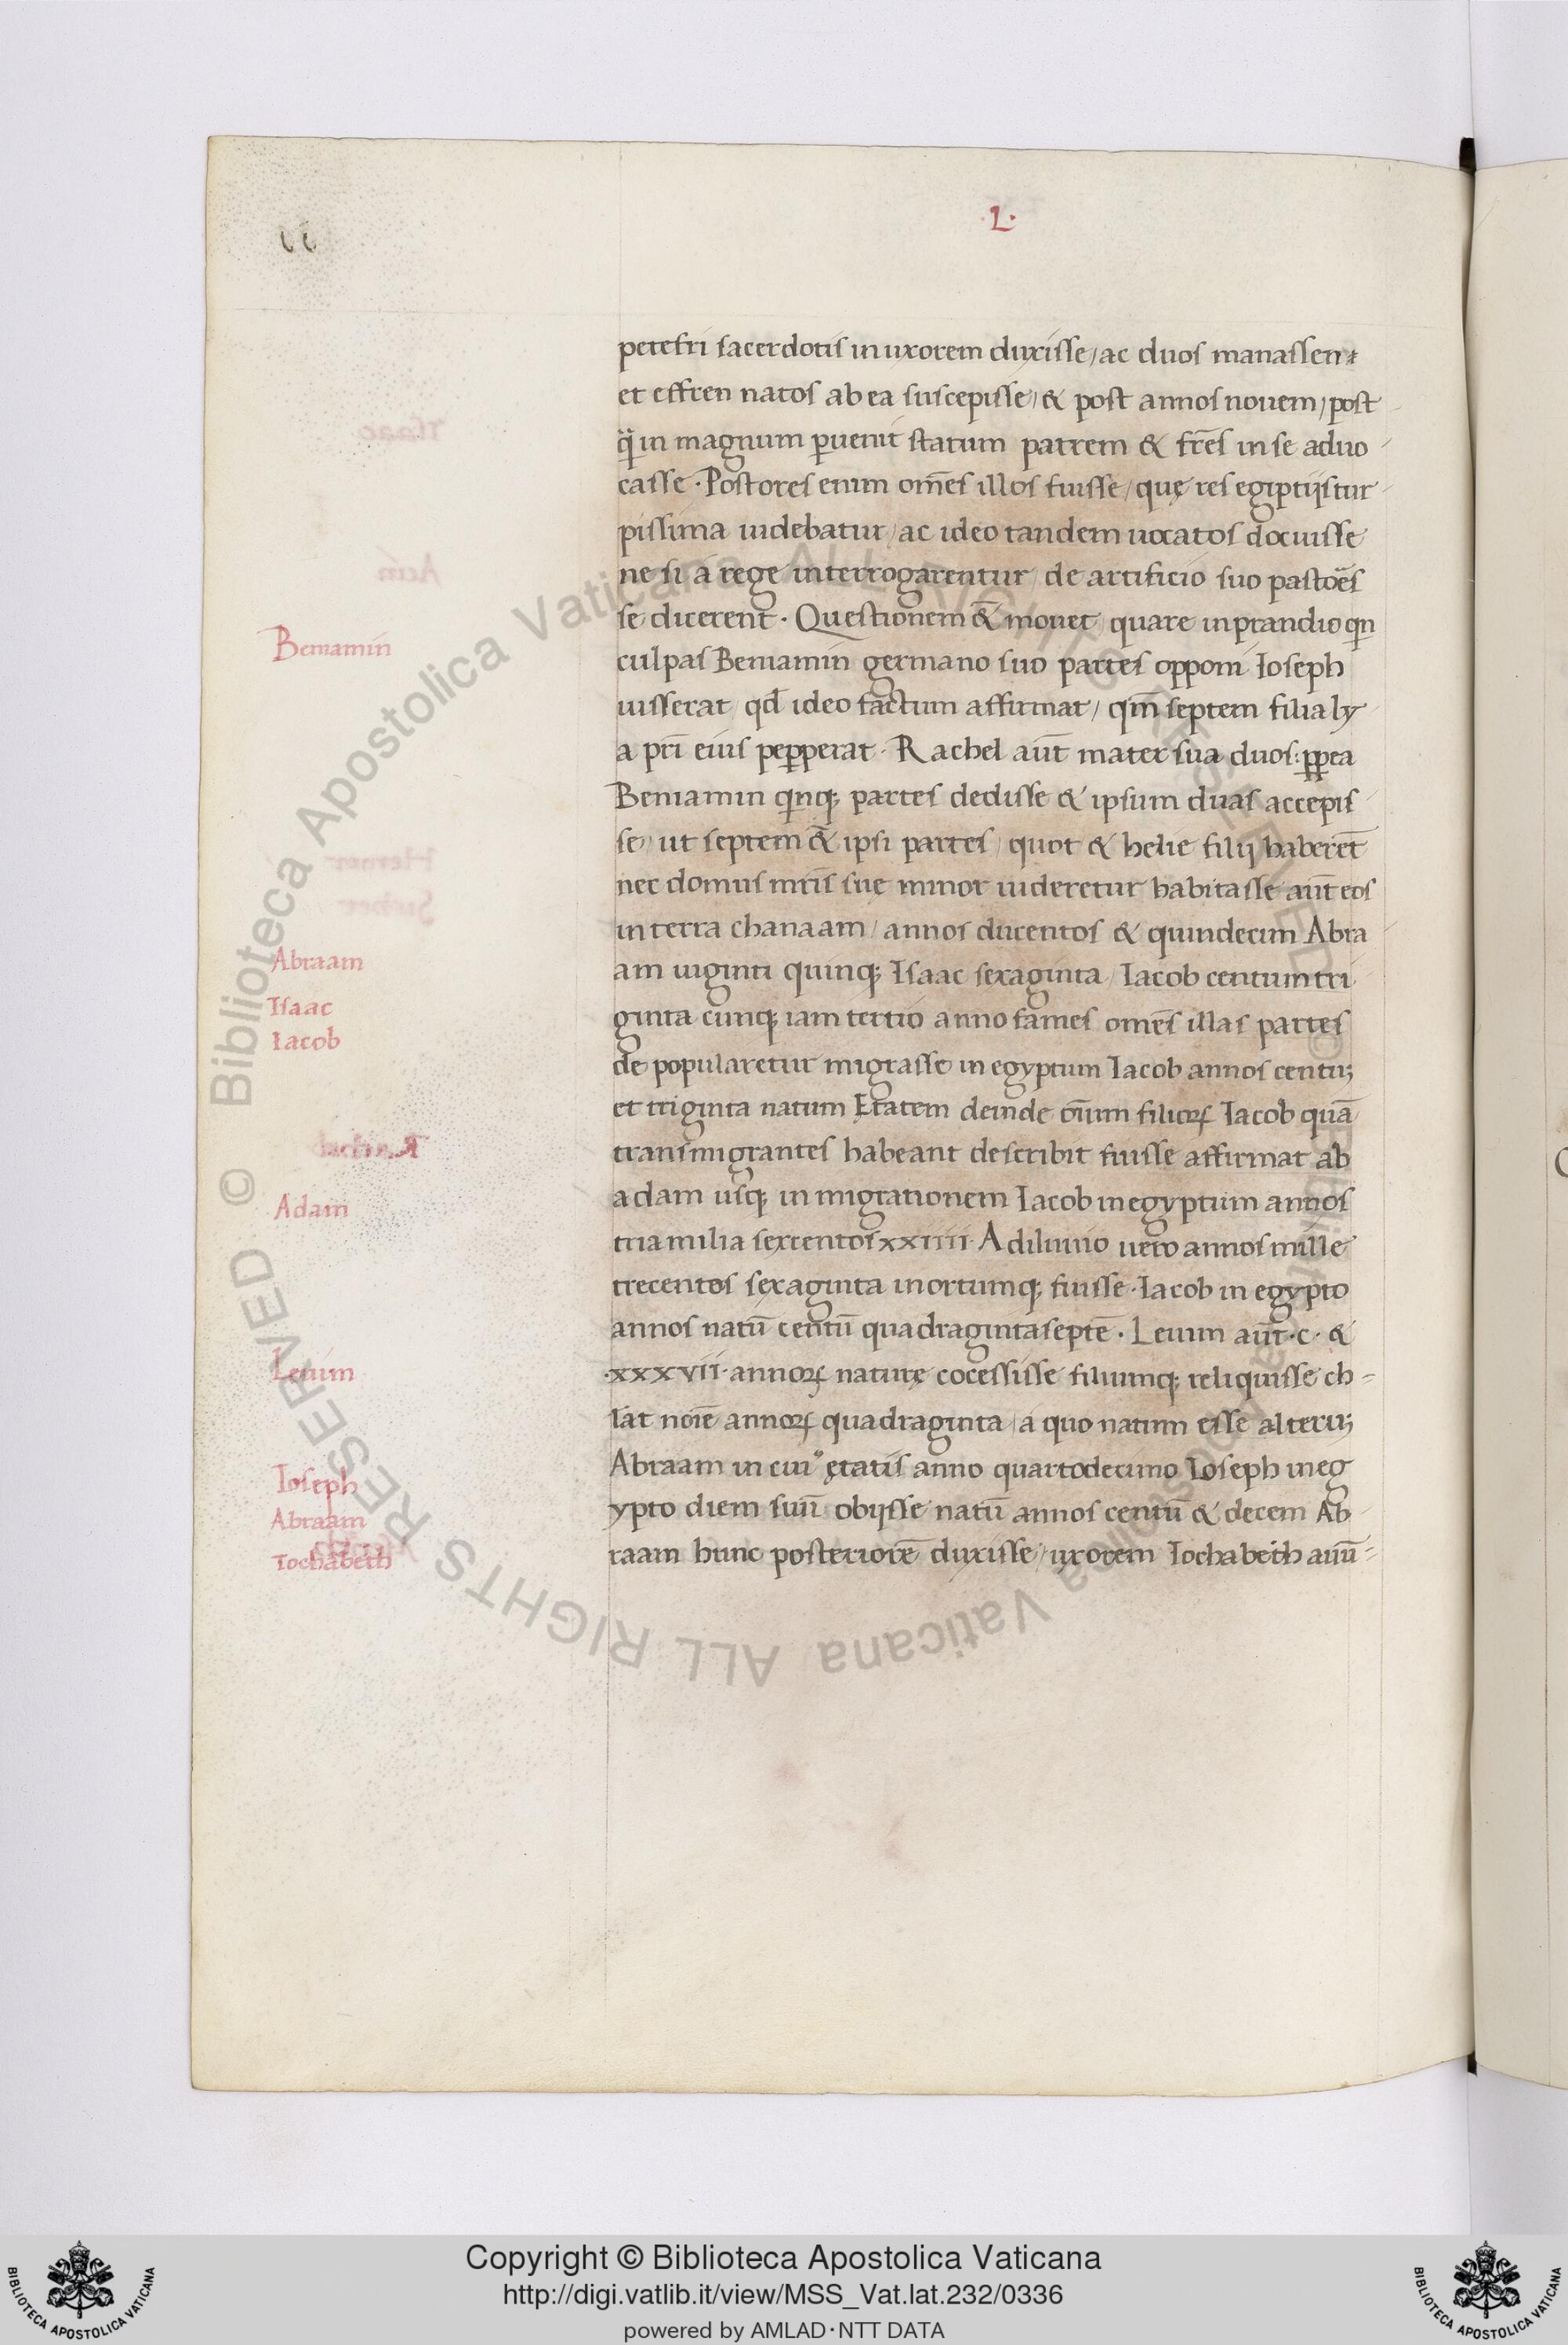 L·
petefri sacerdotis in uxorem duxisse/ac duos manassen
et effren natos ab ea suscepisse/& post annos nouem/post
in magnum puenit statum patrem & fres in se aduo
casse·Postores enim oms illos fuisse/quę res egiptijs tur
pissima uidebatur/ac ideo tandem uocatos docuisse
ne si a rege interrogarentur/de artificio suo pastoes
se dicerent·Questionem & mouet/quare in prandio qn
culpas Beniamin germano suo partes opponi Ioseph
iusserat/qd ideo factum affirmat/qm septem filia ly
a pri eius pepperat·Rachel aut mater sua duos: ppea
Beniamin qnq; partes dedisse & ipsum duas accepis
se/ut septem & ipsi partes/quot & helie filij haberet
nec domus mris suę minor uideretur habitasse aut eos
in terra chanaam/annos ducentos & quindecim Abra
am uiginti quinq; Isaac sexaginta/Iacob centum tri
ginta cunq; iam tertio anno fames omes illas partes
de popularetur migrasse in egyptum Iacob annos centu;
et triginta natum Etatem deinde oium filioꝝ Iacob quā
transmigrantes habeant describit fuisse affirmat ab
adam usq; in migrationem Iacob in egyptum annos
tria milia sexcentos xxiiii·A diluuio uero annos mille
trecentos sexaginta in ortumq; fuisse·Iacob in egypto
annos natū centū quadraginta septē·Leuim aut·c·&
·xxxvii·annoꝝ naturę cocessisse filiumq; reliquisse ch=
lat noie annoꝝ quadraginta/a quo natum esse alteru;
Abraam in cui⁹ ętatis anno quartodecimo Ioseph in eg
ypto diem suū obijsse natū annos centū & decem Ab
raam hunc posteriorē duxisse/uxorem Iochabeth auū=
Beniamin
Abraam
Isaac
Iacob
Adam
Leuim
Ioseph
Abraam
Iochabeth
© Biblioteca Apostolica Vaticana ALL RIGHTS RESERVED
© Biblioteca Apostolica Vaticana ALL RIGHTS RESERVED
BIBLIOTECA APOSTOLICA VATICANA
Copyright © Biblioteca Apostolica Vaticana
http://digi.vatlib.it/view/MSS_Vat.lat.232/0336
powered by AMLAD·NTT DATA
BIBLIOTECA APOSTOLICA VATICANA